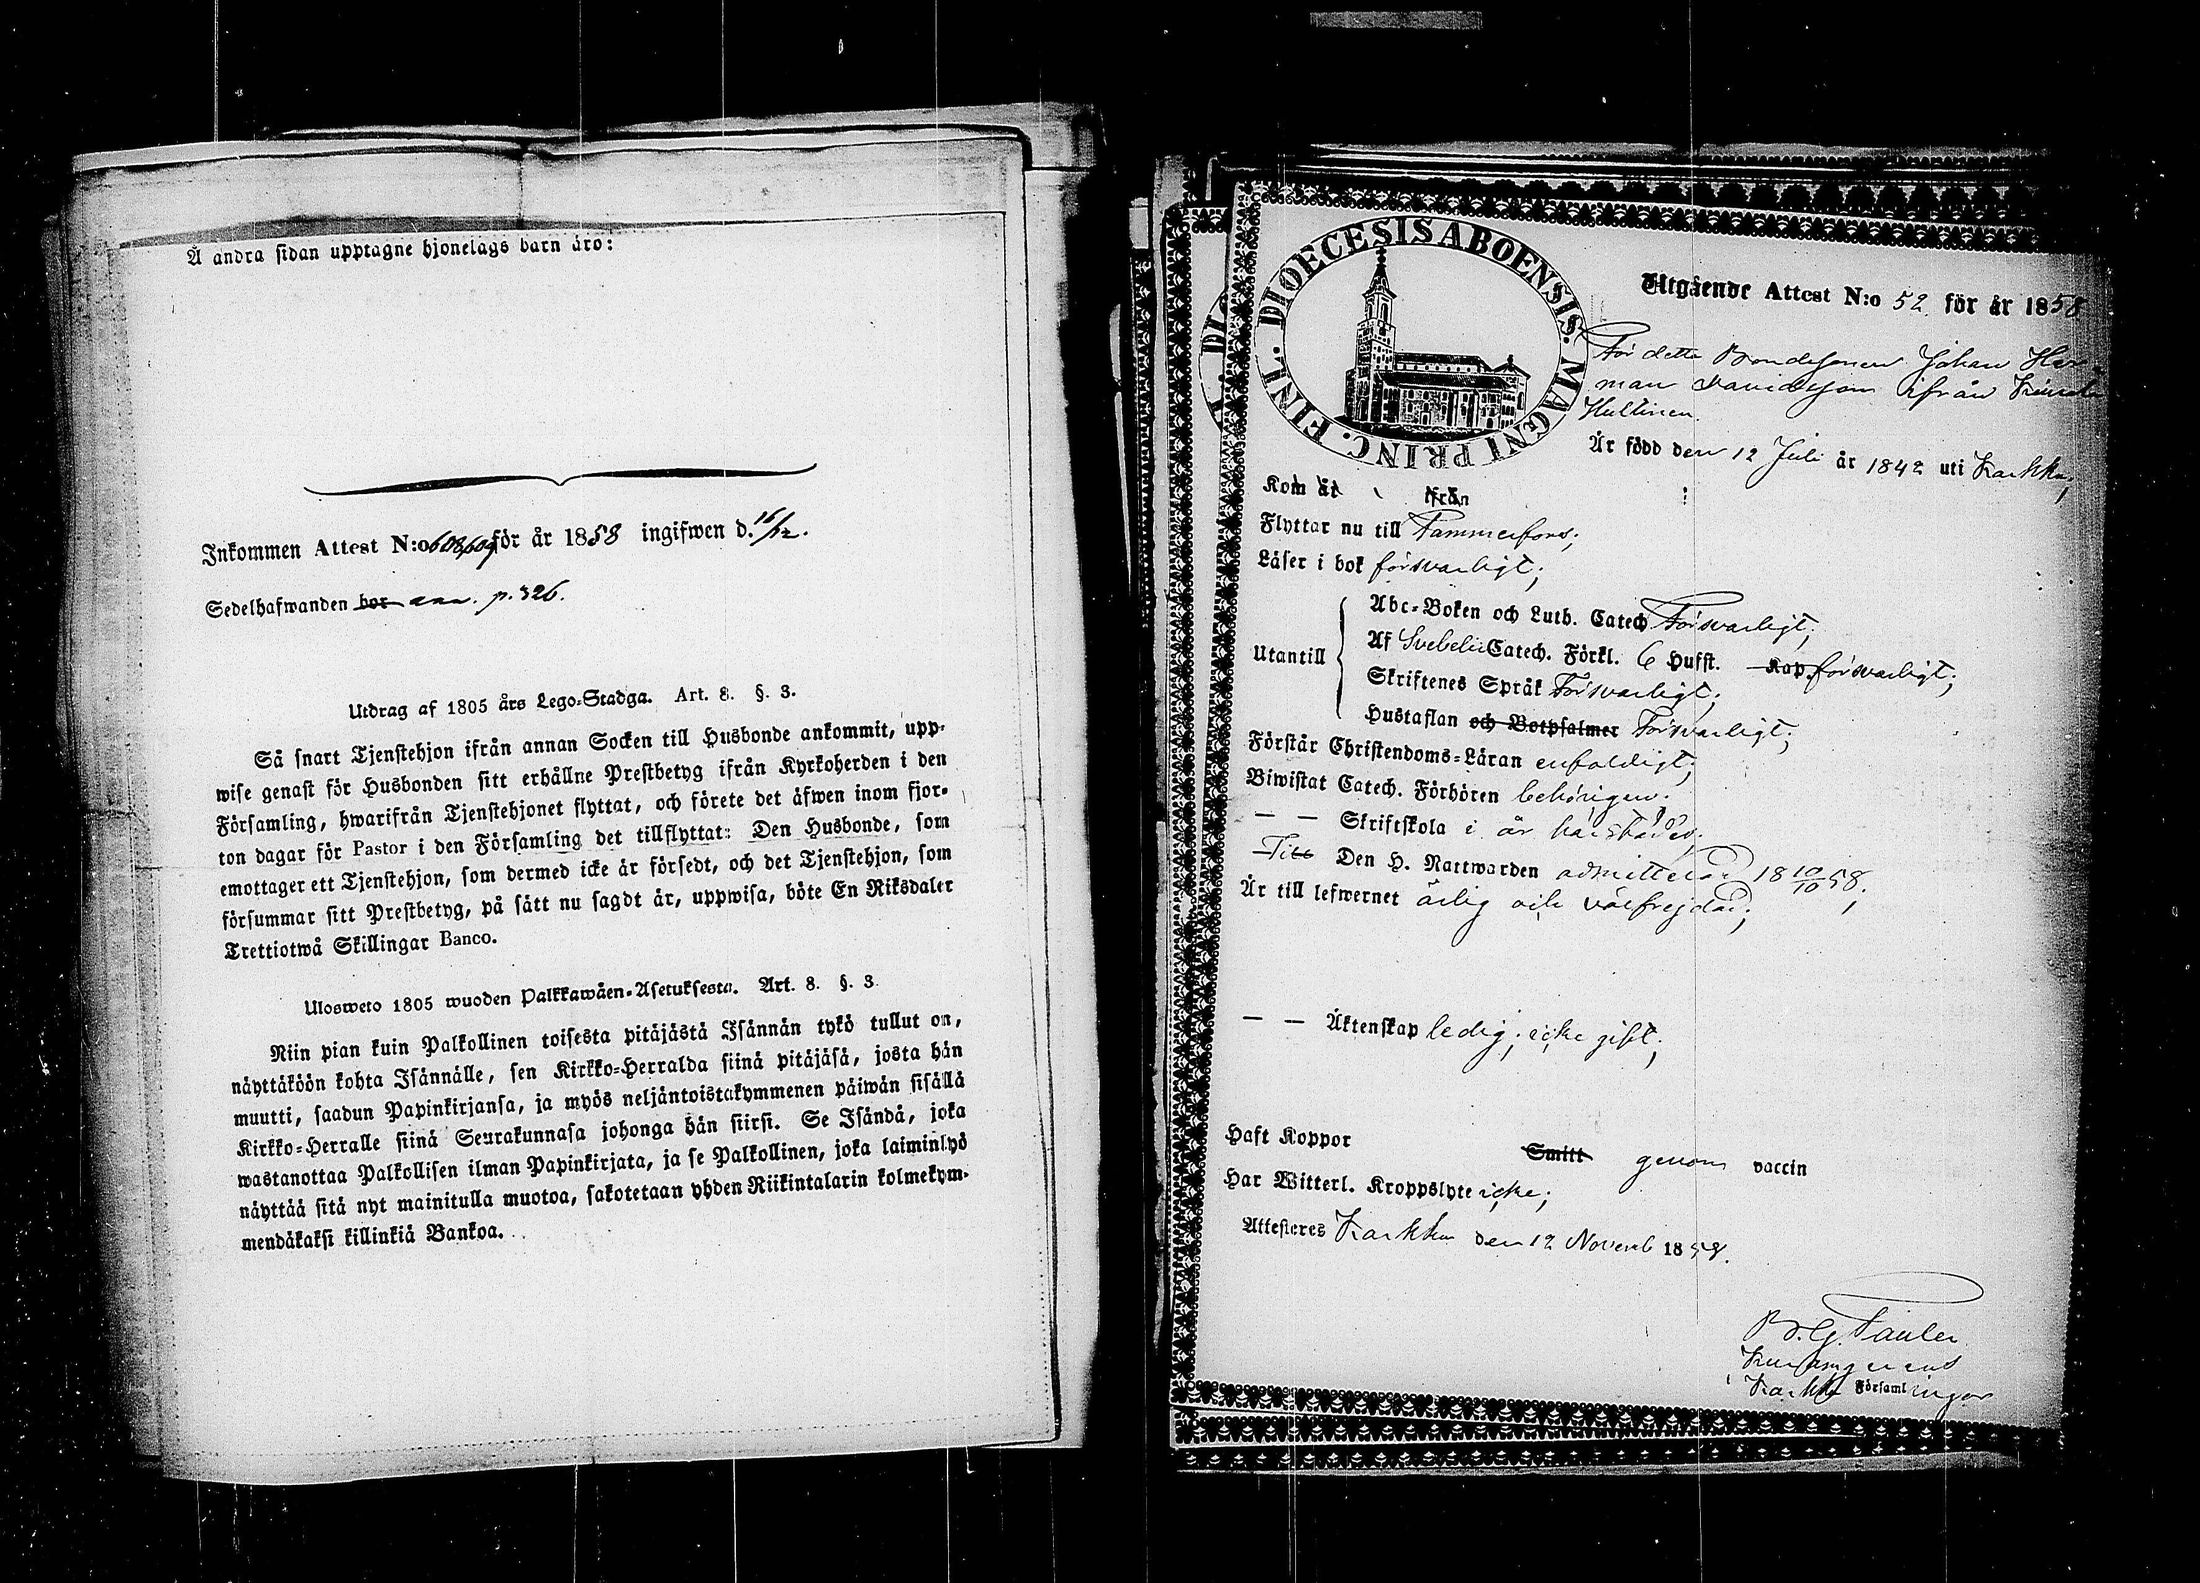 Å andra sidan upptagne hjonelags barn äro:
Inkommen Attest N:o 608,609 för år 1858 ingifwen d. 16/12.
Sedelhafwanden bor ann. p. 326.
Utdrag af 1805 års Lego-Stadga. Art. 8. §. 3.
Så snart Tjenstehjon ifrån annan Socken till Husbonde ankommit, upp-
wise genast för Husbonden sitt erhållne Prestbetyg ifrån Kyrkoherden i den
Församling, hwarifrån Tjenstehjonet flyttat, och förete det äfwen inom fjor-
ton dagar för Pastor i den Församling det tillflyttat: Den Husbonde, som
emottager ett Tjenstehjon, som dermed icke är försedt, och det Tjenstehjon, som
försummar sitt Prestbetyg, på sätt nu sagdt är, uppwisa, böte En Riksdaler
Trettiotwå Skillingar Banco.
Ulosweto 1805 wuoden Palkkawäen-Asetuksesta. Art. 8. §. 3.
Niin pian kuin Palkollinen toisesta pitäjästä Isännän tykö tullut on,
näyttäköön kohta Isännälle, sen Kirkko-Herralda siinä pitäjäsä, josta hän
muutti, saadun Papinkirjansa, ja myös neljäntoistakymmenen päiwän sisällä
Kirkko-Herralle siinä Seurakunnasa johonga hän siirsi. Se Isändä, joka
wastanottaa Palkollisen ilman Papinkirjata, ja se Palkollinen, joka laiminlyö
näyttää sitä nyt mainitulla muotoa, sakotetaan yhden Riikintalarin kolmekym-
mendäkaksi killinkiä Bankoa.
FINL. DIOECESIS ABOENSIS. MAGNI PRINC.
Utgående Attest N:o 52 för år 1858
För detta Bondesonen Johan Her-
man Davidsson ifrån
Hultinen.
Är född den 12 Juli år 1842 uti Karkku;
Kom år ifrån ;
Flyttar nu till Tammerfors;
Läser i bok försvarligt;
Utantill
Abc-Boken och Luth. Catech Försvarligt;
Af Svebelii Catech. Förkl. 6 Hufst. Kap försvarligt;
Skriftenes Språk Försvarligt;
Hustaflan och Botpsalmer Försvarligt;
Förstår Christendoms-Läran enfaldigt;
Biwistat Catech. Förhören behörigen.
— — Skriftskola i år härstädes;
Till Den H. Nattwarden admitterad 18 10/10 58;
Är till lefwernet ärlig och välfrejdad;
— — Äktenskap ledig; icke gift;
Haft Koppor Smitt genom vaccin
Har Witterl. Kroppslyte icke;
Attesteres Karkku den 12 Novemb 1858.
Karkku Församlingar